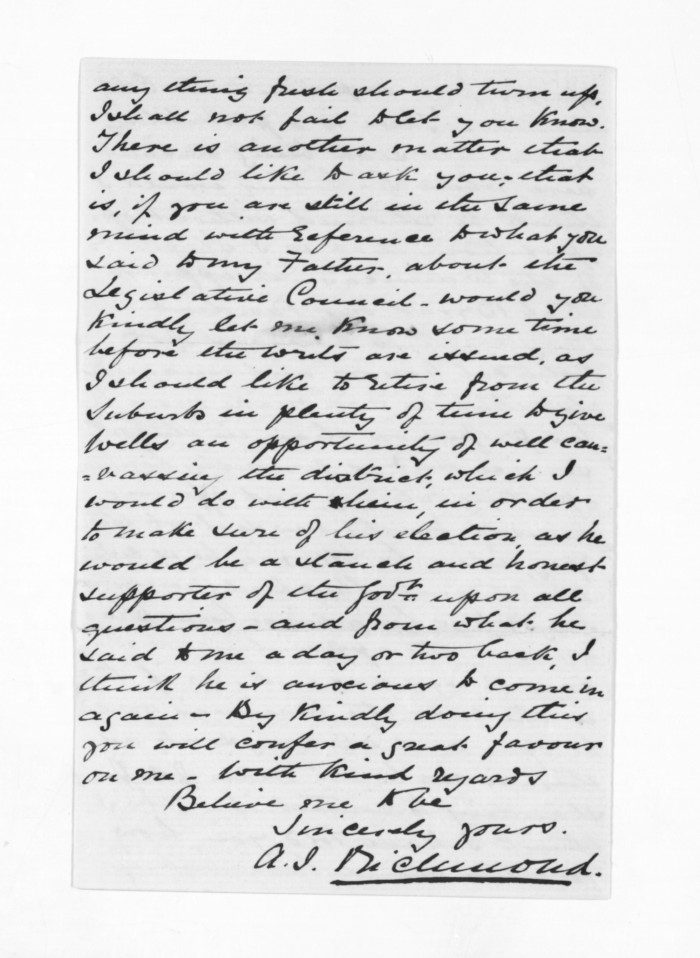 any thing fresh should turn up,
I shall not fail to let you know.
There is another matter that
I should like to ask you, that
is, if you are still in the same
mind with reference to what you
said to my Father, about the
Legislative Council - would you
kindly let me know some time
before the writs are issued, as
I should like to retire from the
Suburbs in plenty of time to give
Wells an opportunity of well can=
=vassing the district, which I
would do with him, in order
to make sure of his election, as he
would be a stanch and honest
supporter of the Govt. upon all
questions - and from what he
said to me a day or two back, I
think he is anxious to come in
again - By kindly doing this
you will confer a great favour
on me - With kind regards
Believe me to be
Sincerely yours.
A. J. Richmond.